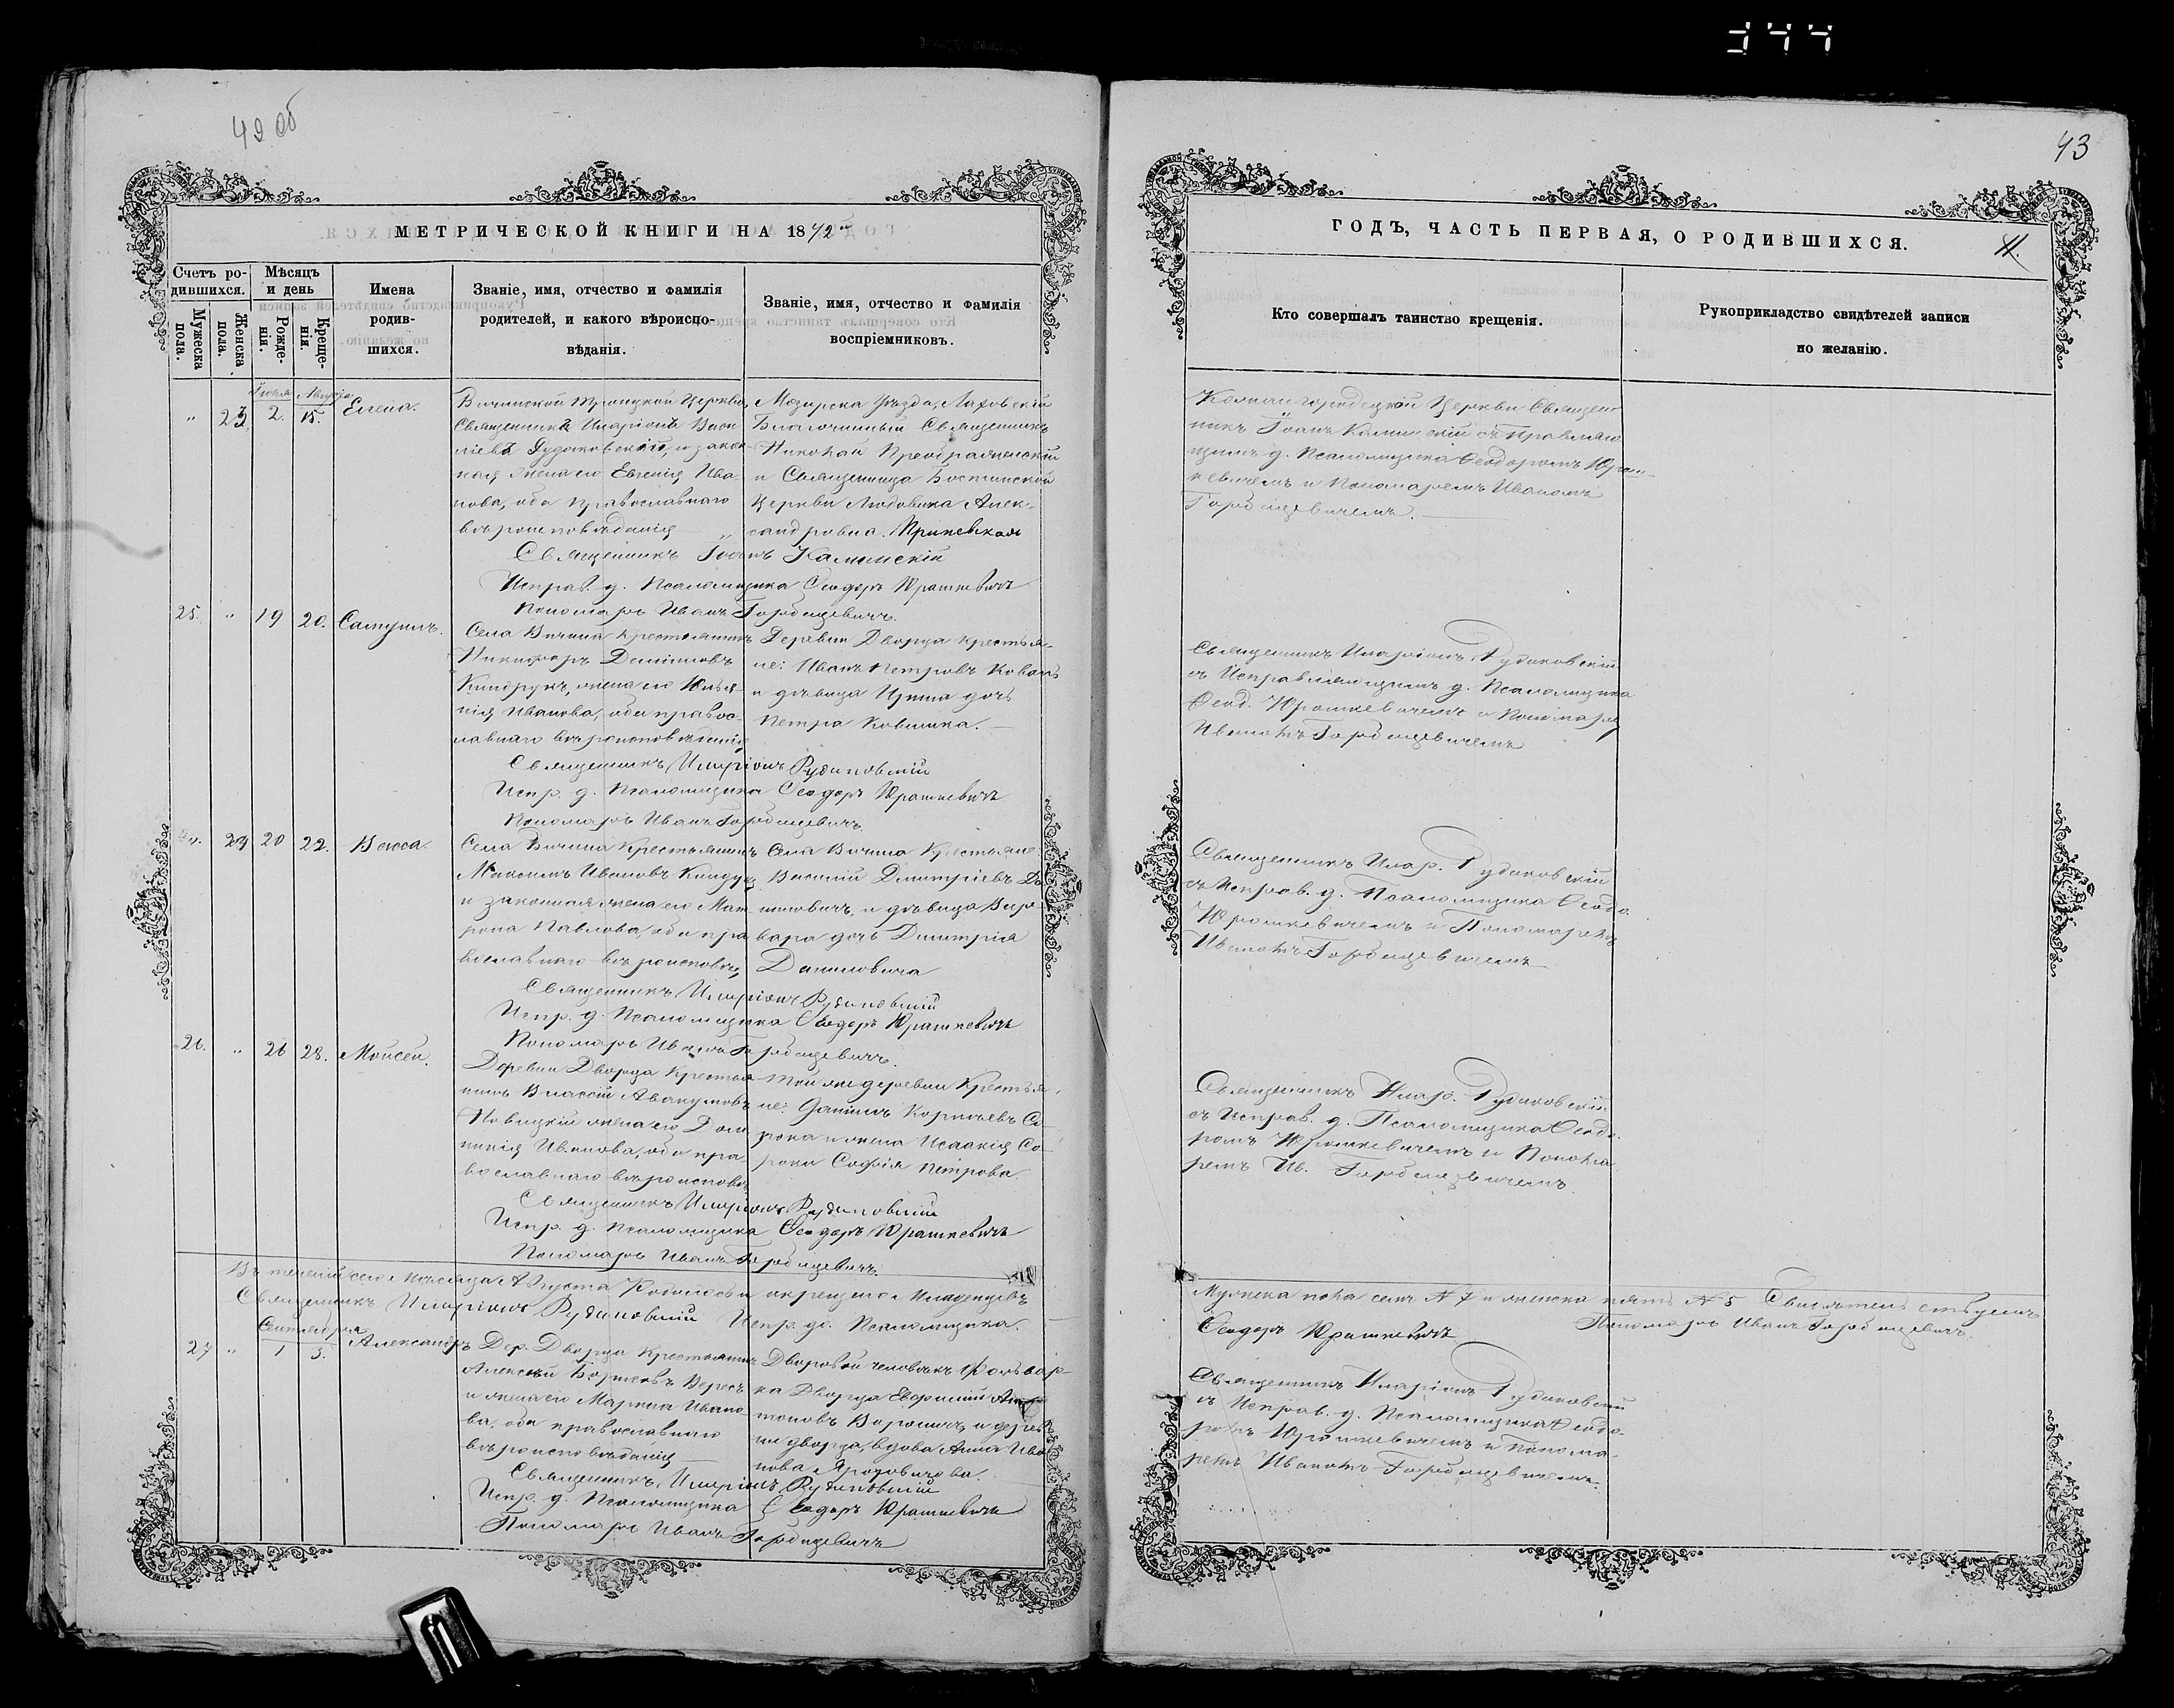 344
42 об
43
МЕТРИЧЕСКОЙ КНИГИ НА 1872
ГОДЪ, ЧАСТЬ ПЕРВАЯ, О РОДИВШИХСЯ.
11.
Счетъ ро-
дившихся.
Мужеска пола.
Женска пола.
Мѣсяцъ
и день
Рожде-
нія.
Креще-
нія.
Имена
родив-
шихся.
Званіе, имя, отчество и фамилія
родителей, и какого вѣроиспо-
вѣданія.
Званіе, имя, отчество и фамилія
воспріемниковъ.
Кто совершалъ таинство крещенія.
Рукоприкладство свидѣтелей записи
по желанію.
" 23 2. 15. Елена.
Вичинской Троицкой Церкви,
Священникъ Иларіонъ Васи
ліевъ Рудаковскій, и закон
ная жена его Евгенія Ива-
нова, оба православнаго
вѣроисповѣданія
Мозырска уѣзда, Лаховскій
Благочинный Священникъ
Николай Преображенскій
и Священница Бостынской
Церкви Людовика Алек-
сандровна
Кожангородецкой Церкви Священ-
никъ Іоаннъ Калинскій съ исправляю
щимъ д. Псаломщика Ѳеодоромъ Юраш-
кевичемъ и Пономаремъ Иваномъ
Горбацевичемъ.
Священникъ Іоаннъ Калинскій
Исправ. д. Псаломщика Ѳеодоръ Юрашкевичъ
Пономарь Иванъ Горбацевичъ.
25. " 19 20. Самуилъ.
Села Вичина Крестьянинъ
Никифоръ Даниловъ
жена его Юлья-
нія Иванова, оба правос-
лавнаго вѣроисповѣданія
Деревни Дворца крестья-
не: Иванъ Петровъ Коваль
и дѣвица Ирина дочь
Петра
Священникъ Иларіонъ Рудаковскій
съ Исправляющимъ д. Псаломщика
Ѳеод. Юрашкевичемъ и Пономаремъ
Иваномъ Горбацевичемъ
Священникъ Иларіонъ Рудаковскій
Испр. д. Псаломщика Ѳеодоръ Юрашкевичъ
Пономарь Иванъ Горбацевичъ
". 24 20 22. Васса.
Села Вичина Крестьянинъ
Максимъ Ивановъ
и законная жена его Мат-
рона Павлова, оба пра
вославнаго вѣроисповѣд
Села Вичина Крестьяне
Василій Димитріевъ Да
ниловичъ, и дѣвица Вар-
вара дочь Димитрія
Даниловича
Священникъ Илар. Рудаковскій
съ Исправ. д. Псаломщика Ѳеодо.
Юрашкевичемъ и Пономаремъ
Иваномъ Горбацевичемъ
Священникъ Иларіонъ Рудаковскій
Испр. д. Псаломщика Ѳеодоръ Юрашкевичъ
Пономарь Иванъ Горбацевичъ.
26. " 26 28. Моисей.
Деревни Дворца Крестья-
нинъ Власій Авакумовъ
жена его Дом-
никія Иванова, оба пра
вославнаго вѣроисповѣд
той же деревни Крестья-
не: Даніилъ Корнѣевъ Со-
рока и жена Исаакія Со-
роки Софія Петрова.
Священникъ Илар. Рудаковскій
съ Исправ. д. Псаломщика Ѳеодо-
ромъ Юрашкевичемъ и Понома
ремъ Ив. Горбацевичемъ.
Священникъ Иларіонъ Рудаковскій
Испр. д. Псаломщика Ѳеодоръ Юрашкевичъ
Пономарь Иванъ Горбацевичъ.
Въ теченіи сего мѣсяца Августа Родилось и окрещено Младенцевъ
Мужеска пола семь № 7 и женска пять № 5
Священникъ Иларіонъ Рудаковскій Испр. до. Псаломщика.
Ѳеодоръ Юрашкевичъ Пономарь Иванъ Горбацевичъ.
Сентября
27 " 1 3. Александръ
Дер. Дворца Крестьянинъ
Алексѣй Вересъ
и жена его Марина Ивано
ва, оба православнаго
вѣроисповѣданія
Дворовой человѣкъ Фольвар-
ка Дворца Ан-
тоновъ и дерев
ни дворца, вдова Анна Ива
нова
Священникъ Иларіонъ Рудаковскій
съ Исправ. д. Псаломщика Ѳеодо-
ромъ Юрашкевичемъ и Понома-
ремъ Иваномъ Горбацевичемъ.
Священникъ, Иларіонъ Рудаковскій
Испр. д. Псаломщика Ѳеодоръ Юрашкевичъ
Пономарь Иванъ Горбацевичъ